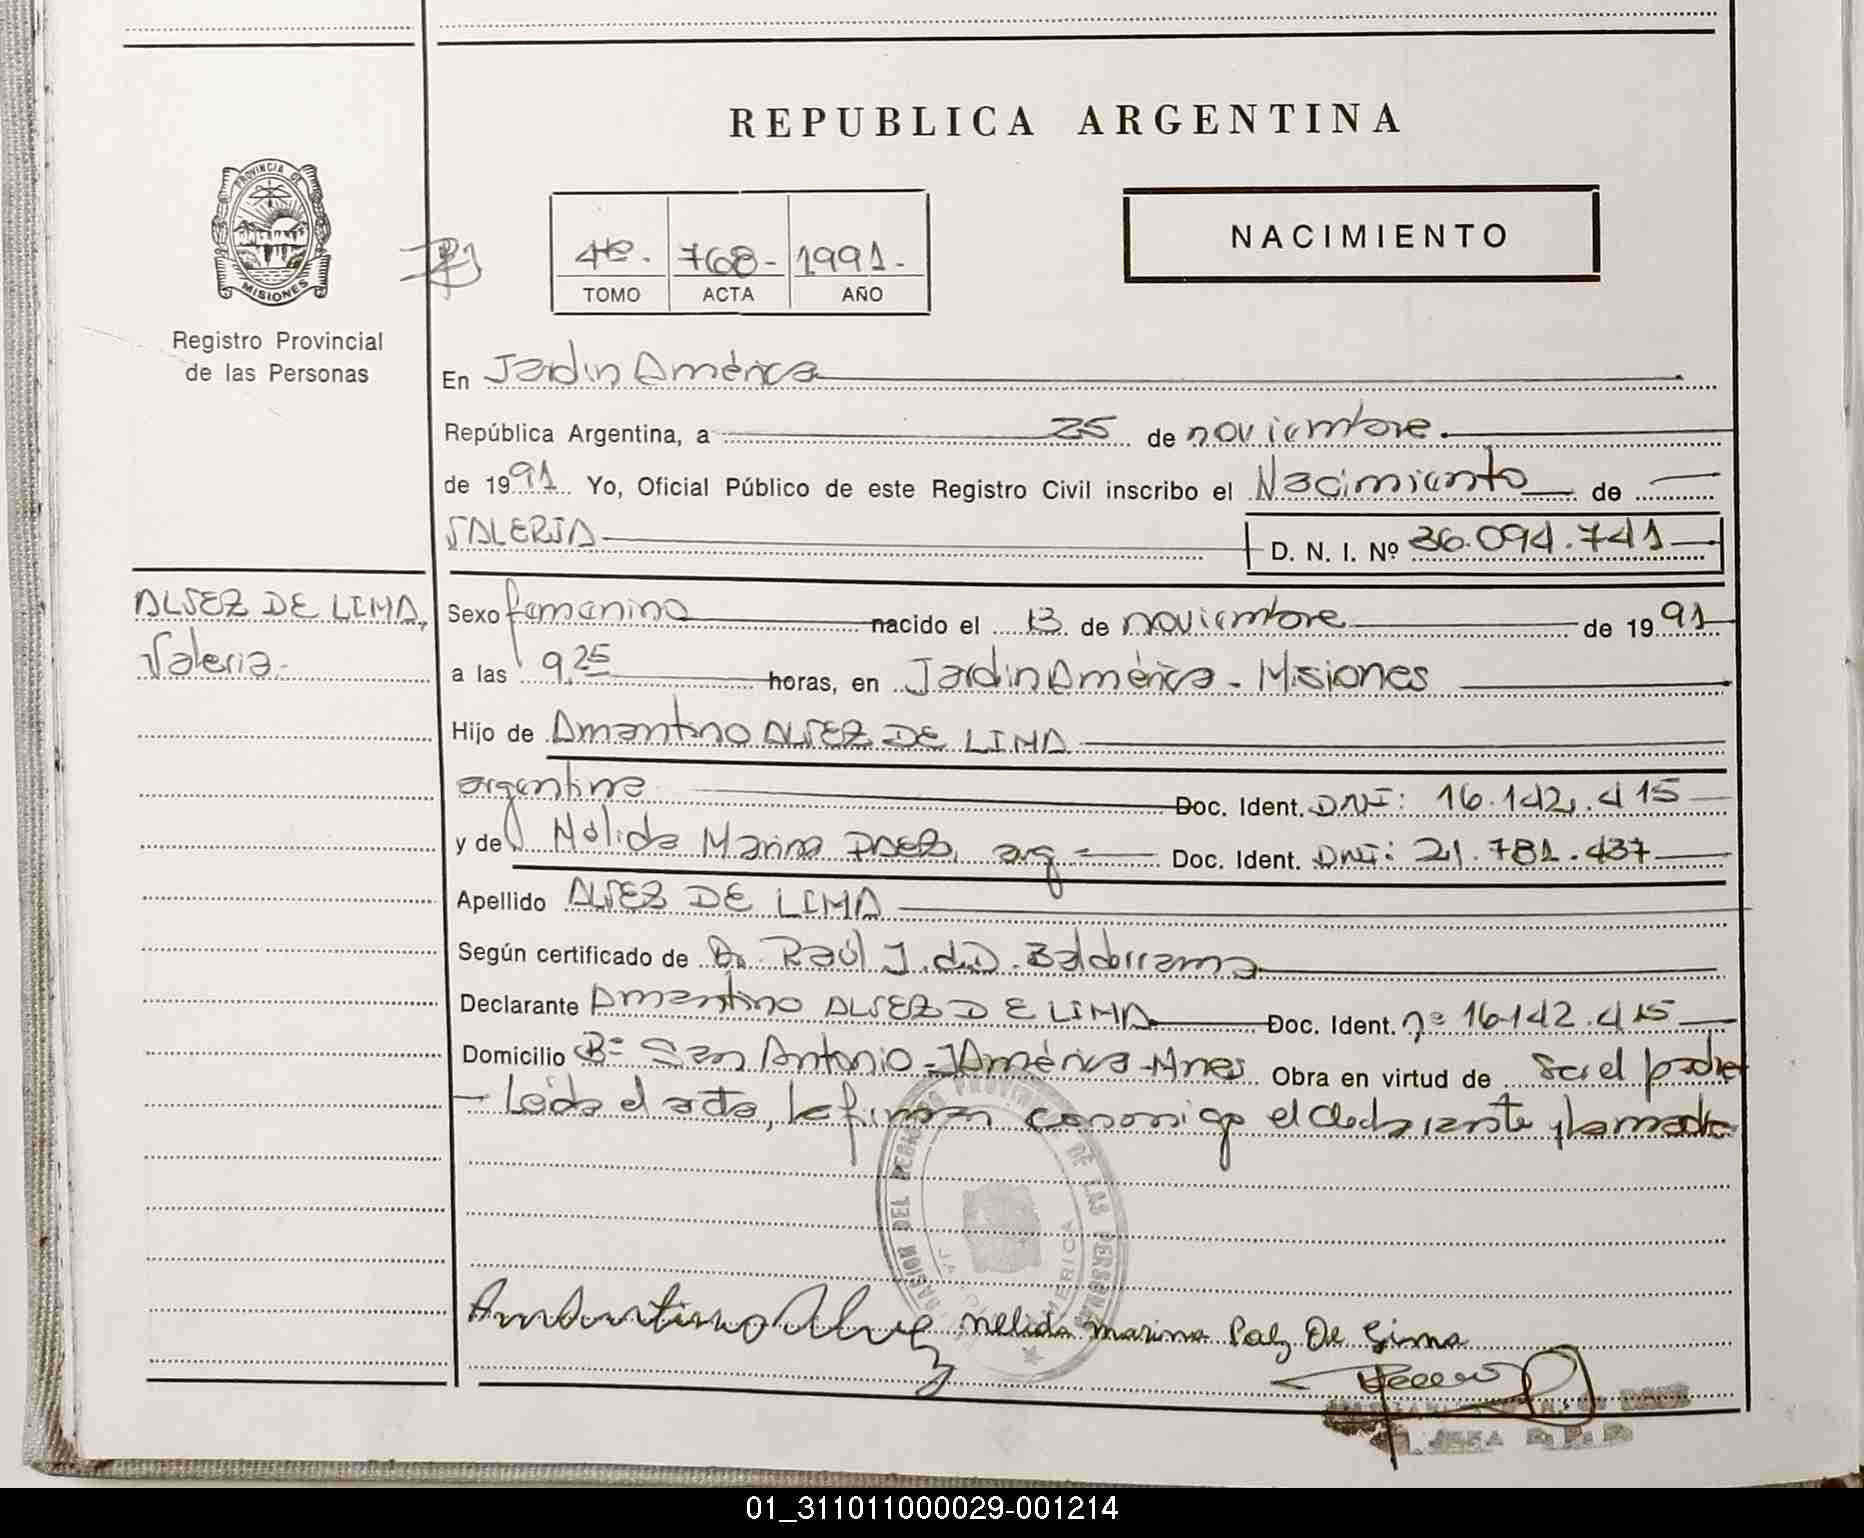 REPUBLICA ARGENTINA
PROVINCIA DE
MISIONES
Registro Provincial
de las Personas
4º. 768- 1991.
TOMO ACTA AÑO
NACIMIENTO
En Jardín América
República Argentina, a 25 de noviembre.
de 1991 Yo, Oficial Público de este Registro Civil inscribo el Nacimiento de
VALERIA D. N. I. Nº 36.094.741
ALVEZ DE LIMA,
Valeria.
Sexo femenino nacido el 13 de noviembre de 1991
a las 9,25 horas, en Jardín América - Misiones
Hijo de Amantino ALVEZ DE LIMA
argentina Doc. Ident. DNI: 16.142.415
y de Nélida Marina PAEZ, arg= Doc. Ident. DNI: 21.781.437
Apellido ALVEZ DE LIMA
Según certificado de Dr. Raúl J. d. D. Balderrama
Declarante Amantino ALVEZ DE LIMA Doc. Ident. nº 16.142.415
Domicilio Bº San Antonio - J América - Mnes Obra en virtud de ser el padre
- Leída el acta, la firman conmigo el declarante y la madre
DEL REGISTRO PROVINCIAL DE LAS PERSONAS
AMERICA
Amantino Alvez Nelida Marina Paez De Lima
01_311011000029-001214